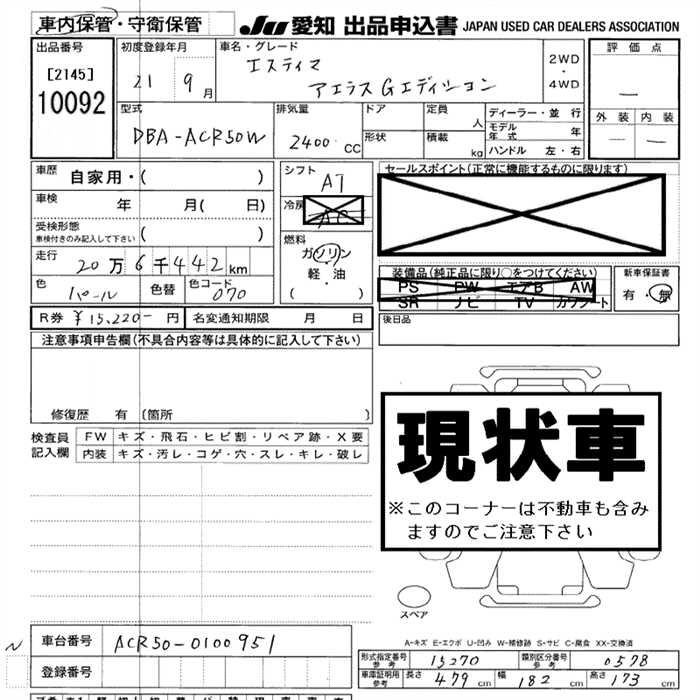 車内保管・守衛保管 JU 愛知 出品申込書 JAPAN USED CAR DEALERS ASSOCIATION
出品番号 [2145] 10092
初度登録年月 21 9月
車名・グレード エスティマ アエラスGエディション
2WD・4WD
評価点 —
外装 — 内装 —
型式 DBA-ACR50W
排気量 2400 CC
ドア 形状
定員 人 積載 kg
ディーラー・並行
モデル年式 年
ハンドル 左・右
車歴 自家用・( )
車検 年 月( 日)
受検形態 車検付きのみ記入して下さい ( )
走行 20万6千442km
色 パール 色替 色コード 070
シフト AT
冷房 AC
燃料 ガソリン 軽・油 ( )
セールスポイント(正常に機能するものに限ります)
装備品(純正品に限り○をつけてください)
PS PW エアB AW
SR ナビ TV カワシート
新車保証書 有・無
R券 ¥15,220-円 名変通知期限 月 日
後日品
注意事項申告欄(不具合内容等は具体的に記入して下さい)
修復歴 有 [箇所 ]
検査員記入欄
FW キズ・飛石・ヒビ割・リペア跡・X要
内装 キズ・汚レ・コゲ・穴・スレ・キレ・破レ
現状車
※このコーナーは不動車も含み
ますのでご注意下さい
スペア
A-キズ E-エクボ U-凹み W-補修跡 S-サビ C-腐食 XX-交換済
N 車台番号 ACR50-0100951
登録番号
形式指定番号 参考 15270 類別区分番号 参考 0578
車庫証明用 参考 長さ 479cm 幅 182cm 高さ 173cm